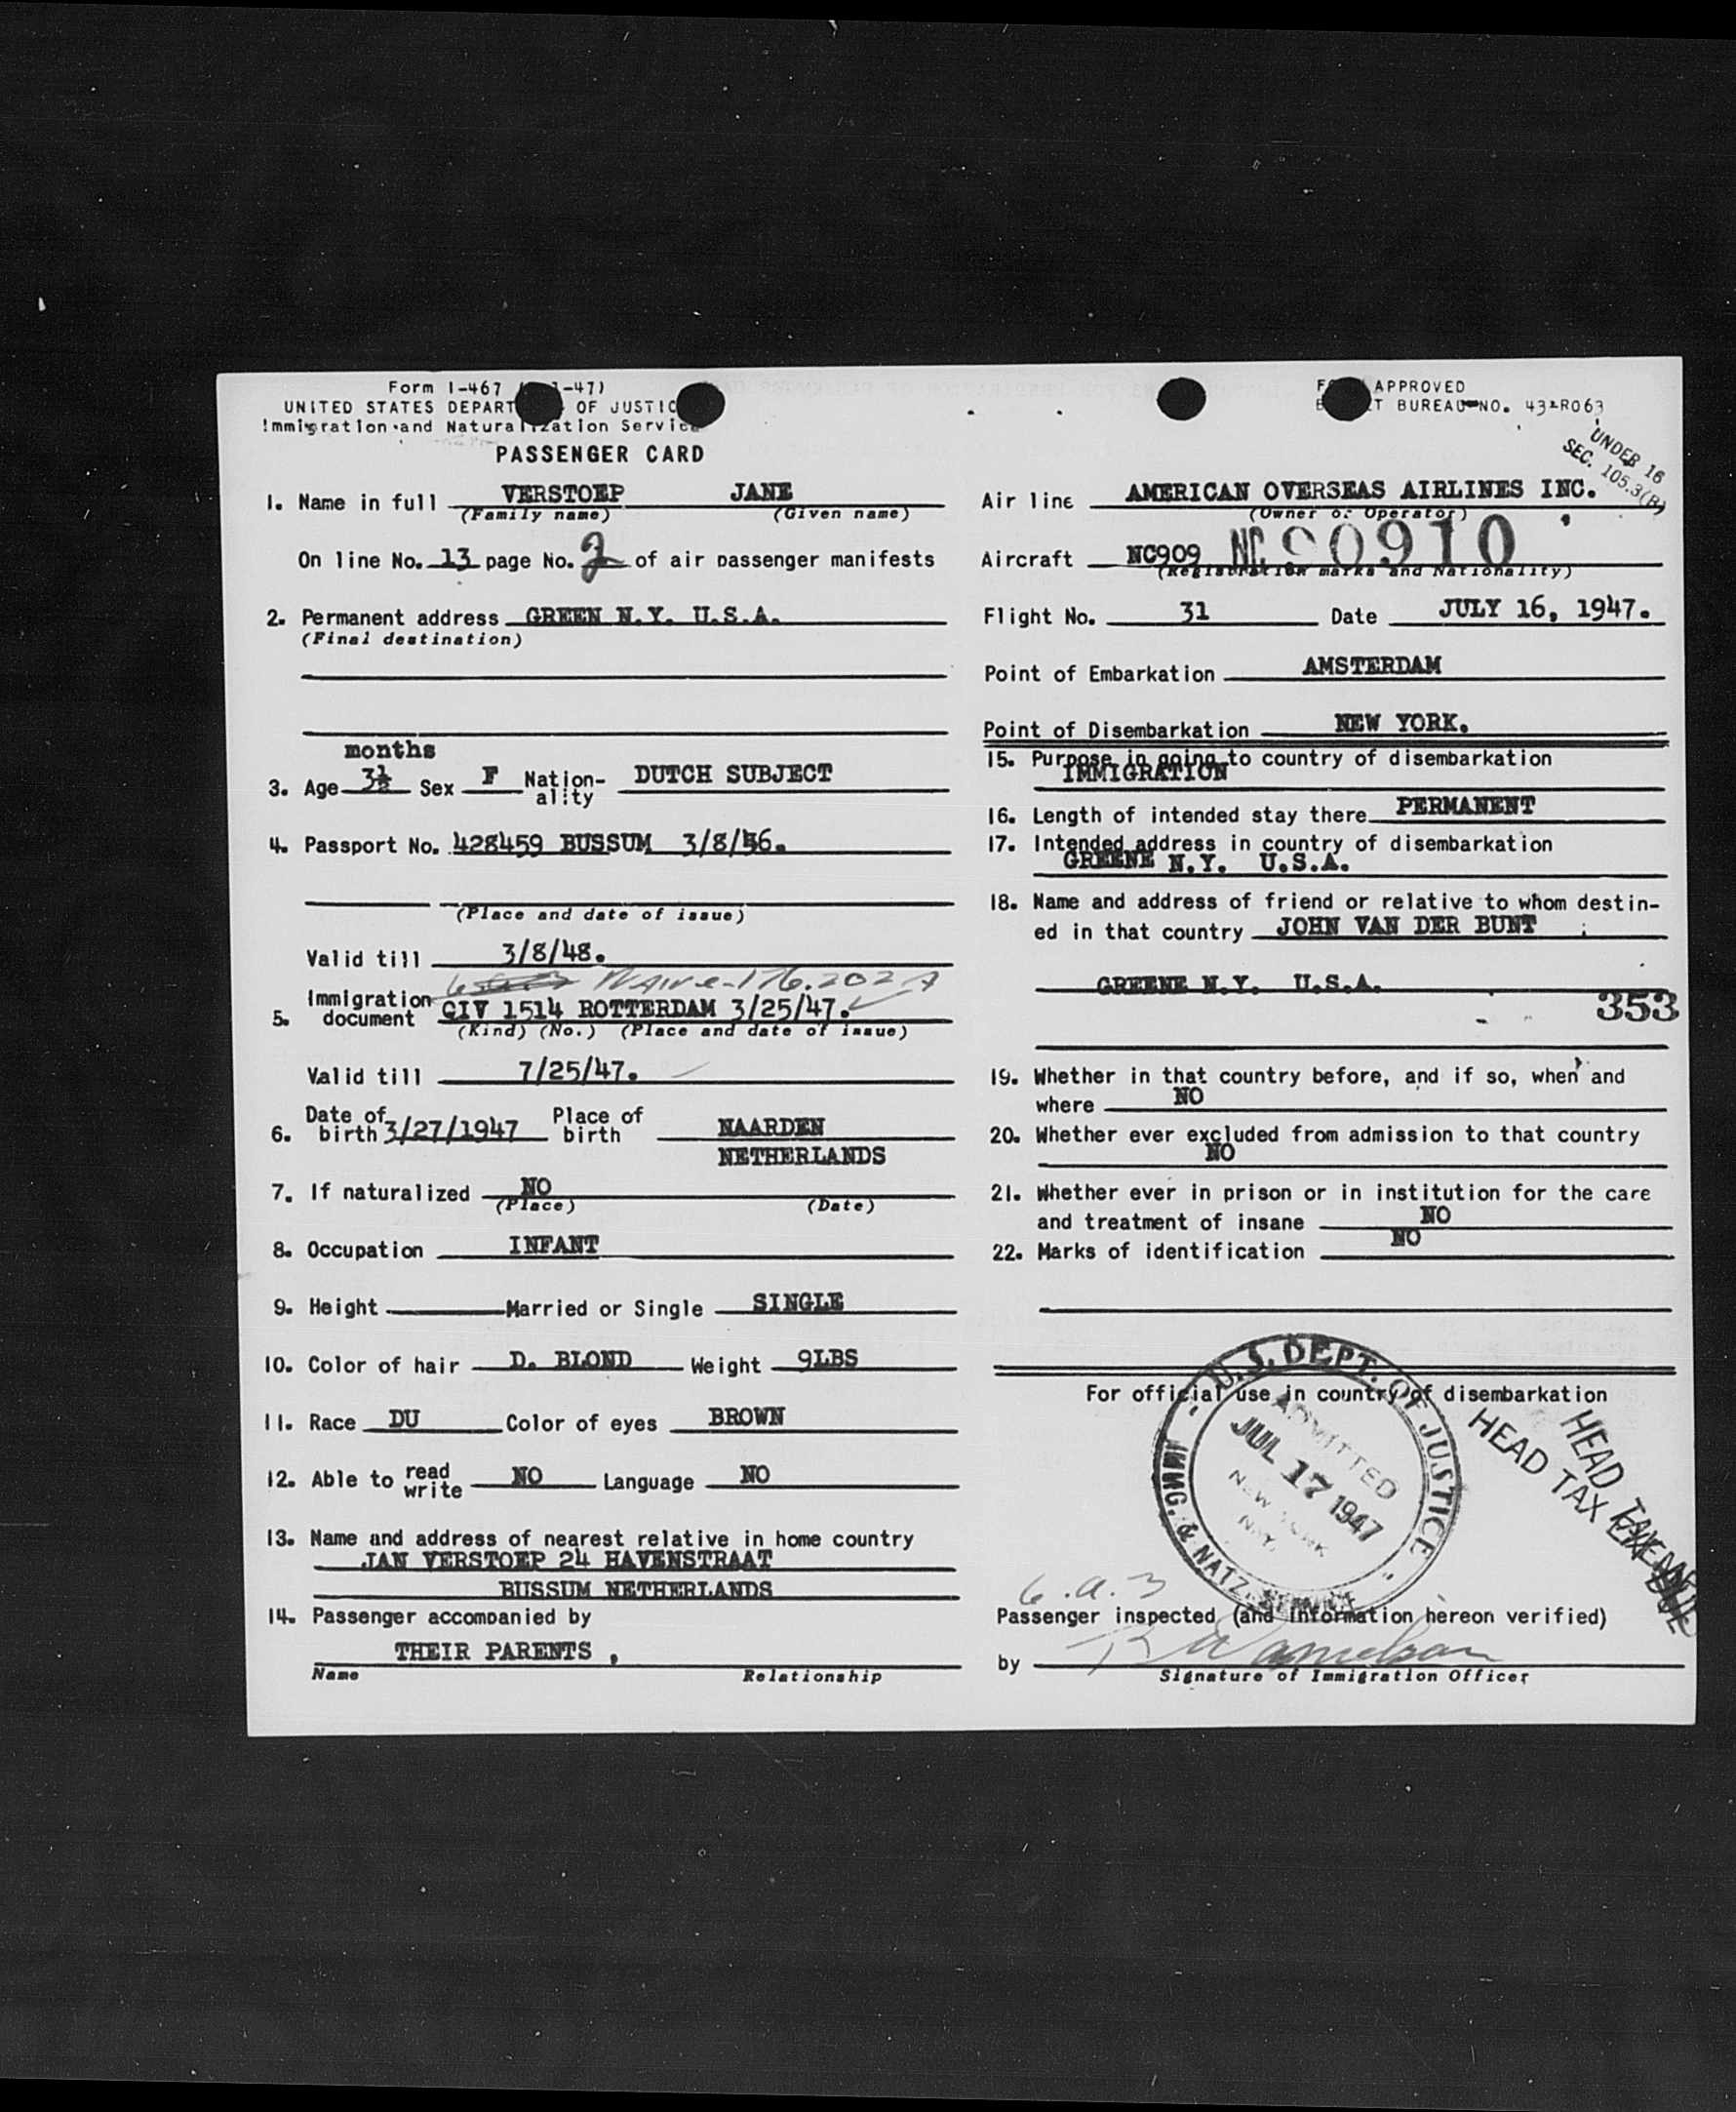 Form I-467 -47)
UNITED STATES DEPART OF JUSTIC
Immigration and Naturalization Service
PASSENGER CARD
APPROVED
BUREAU NO. 43-R063
UNDER 16
SEC. 105.3(B)
1. Name in full VERSTOEP JANE
(Family name) (Given name)
On line No. 13 page No. 2 of air passenger manifests
2. Permanent address GREEN N.Y. U.S.A.
(Final destination)
months
3. Age 3½ Sex F Nation-ality DUTCH SUBJECT
4. Passport No. 428459 BUSSUM 3/8/46.
(Place and date of issue)
Valid till 3/8/48.
5. Immigration document QIV 1514 ROTTERDAM 3/25/47.
(Kind) (No.) (Place and date of issue)
Valid till 7/25/47.
6. Date of birth 3/27/1947 Place of birth NAARDEN
NETHERLANDS
7. If naturalized NO
(Place) (Date)
8. Occupation INFANT
9. Height Married or Single SINGLE
10. Color of hair D. BLOND Weight 9LBS
11. Race DU Color of eyes BROWN
12. Able to read write NO Language NO
13. Name and address of nearest relative in home country
JAN VERSTOEP 24 HAVENSTRAAT
BUSSUM NETHERLANDS
14. Passenger accompanied by
THEIR PARENTS ,
Name Relationship
Air line AMERICAN OVERSEAS AIRLINES INC.
(Owner or Operator)
Aircraft NC909 NC 90910
(Registration marks and Nationality)
Flight No. 31 Date JULY 16, 1947.
Point of Embarkation AMSTERDAM
Point of Disembarkation NEW YORK.
15. Purpose in going to country of disembarkation
IMMIGRATION
16. Length of intended stay there PERMANENT
17. Intended address in country of disembarkation
GREENE N.Y. U.S.A.
18. Name and address of friend or relative to whom destin-
ed in that country JOHN VAN DER BUNT
GREENE N.Y. U.S.A.
353
19. Whether in that country before, and if so, when and
where NO
20. Whether ever excluded from admission to that country
NO
21. Whether ever in prison or in institution for the care
and treatment of insane NO
22. Marks of identification NO
For official use in country of disembarkation
U.S. DEPT. OF JUSTICE
ADMITTED
JUL 17 1947
NEW YORK
N.Y.
IMMG. & NATZ. SERVICE
HEAD TAX
HEAD TAX
6.a.3
Passenger inspected (and information hereon verified)
by
Signature of Immigration Officer